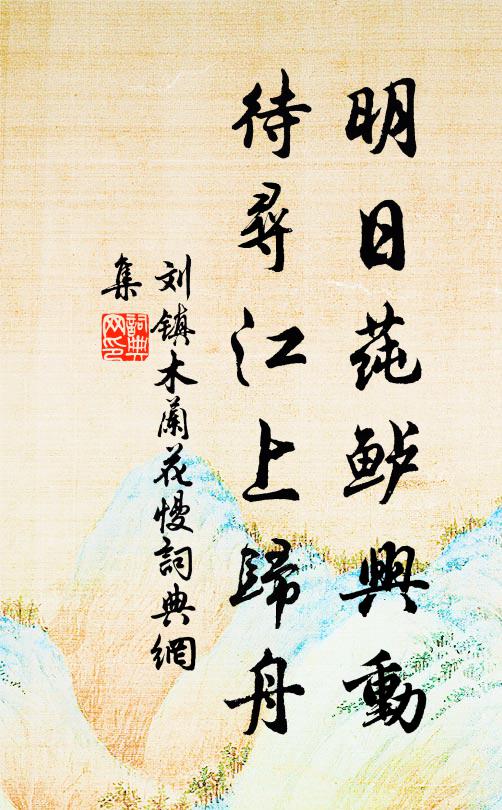 明日莼鲈興動
待尋江上歸舟
刘镇木蘭花慢詞典網
集
詞典网印